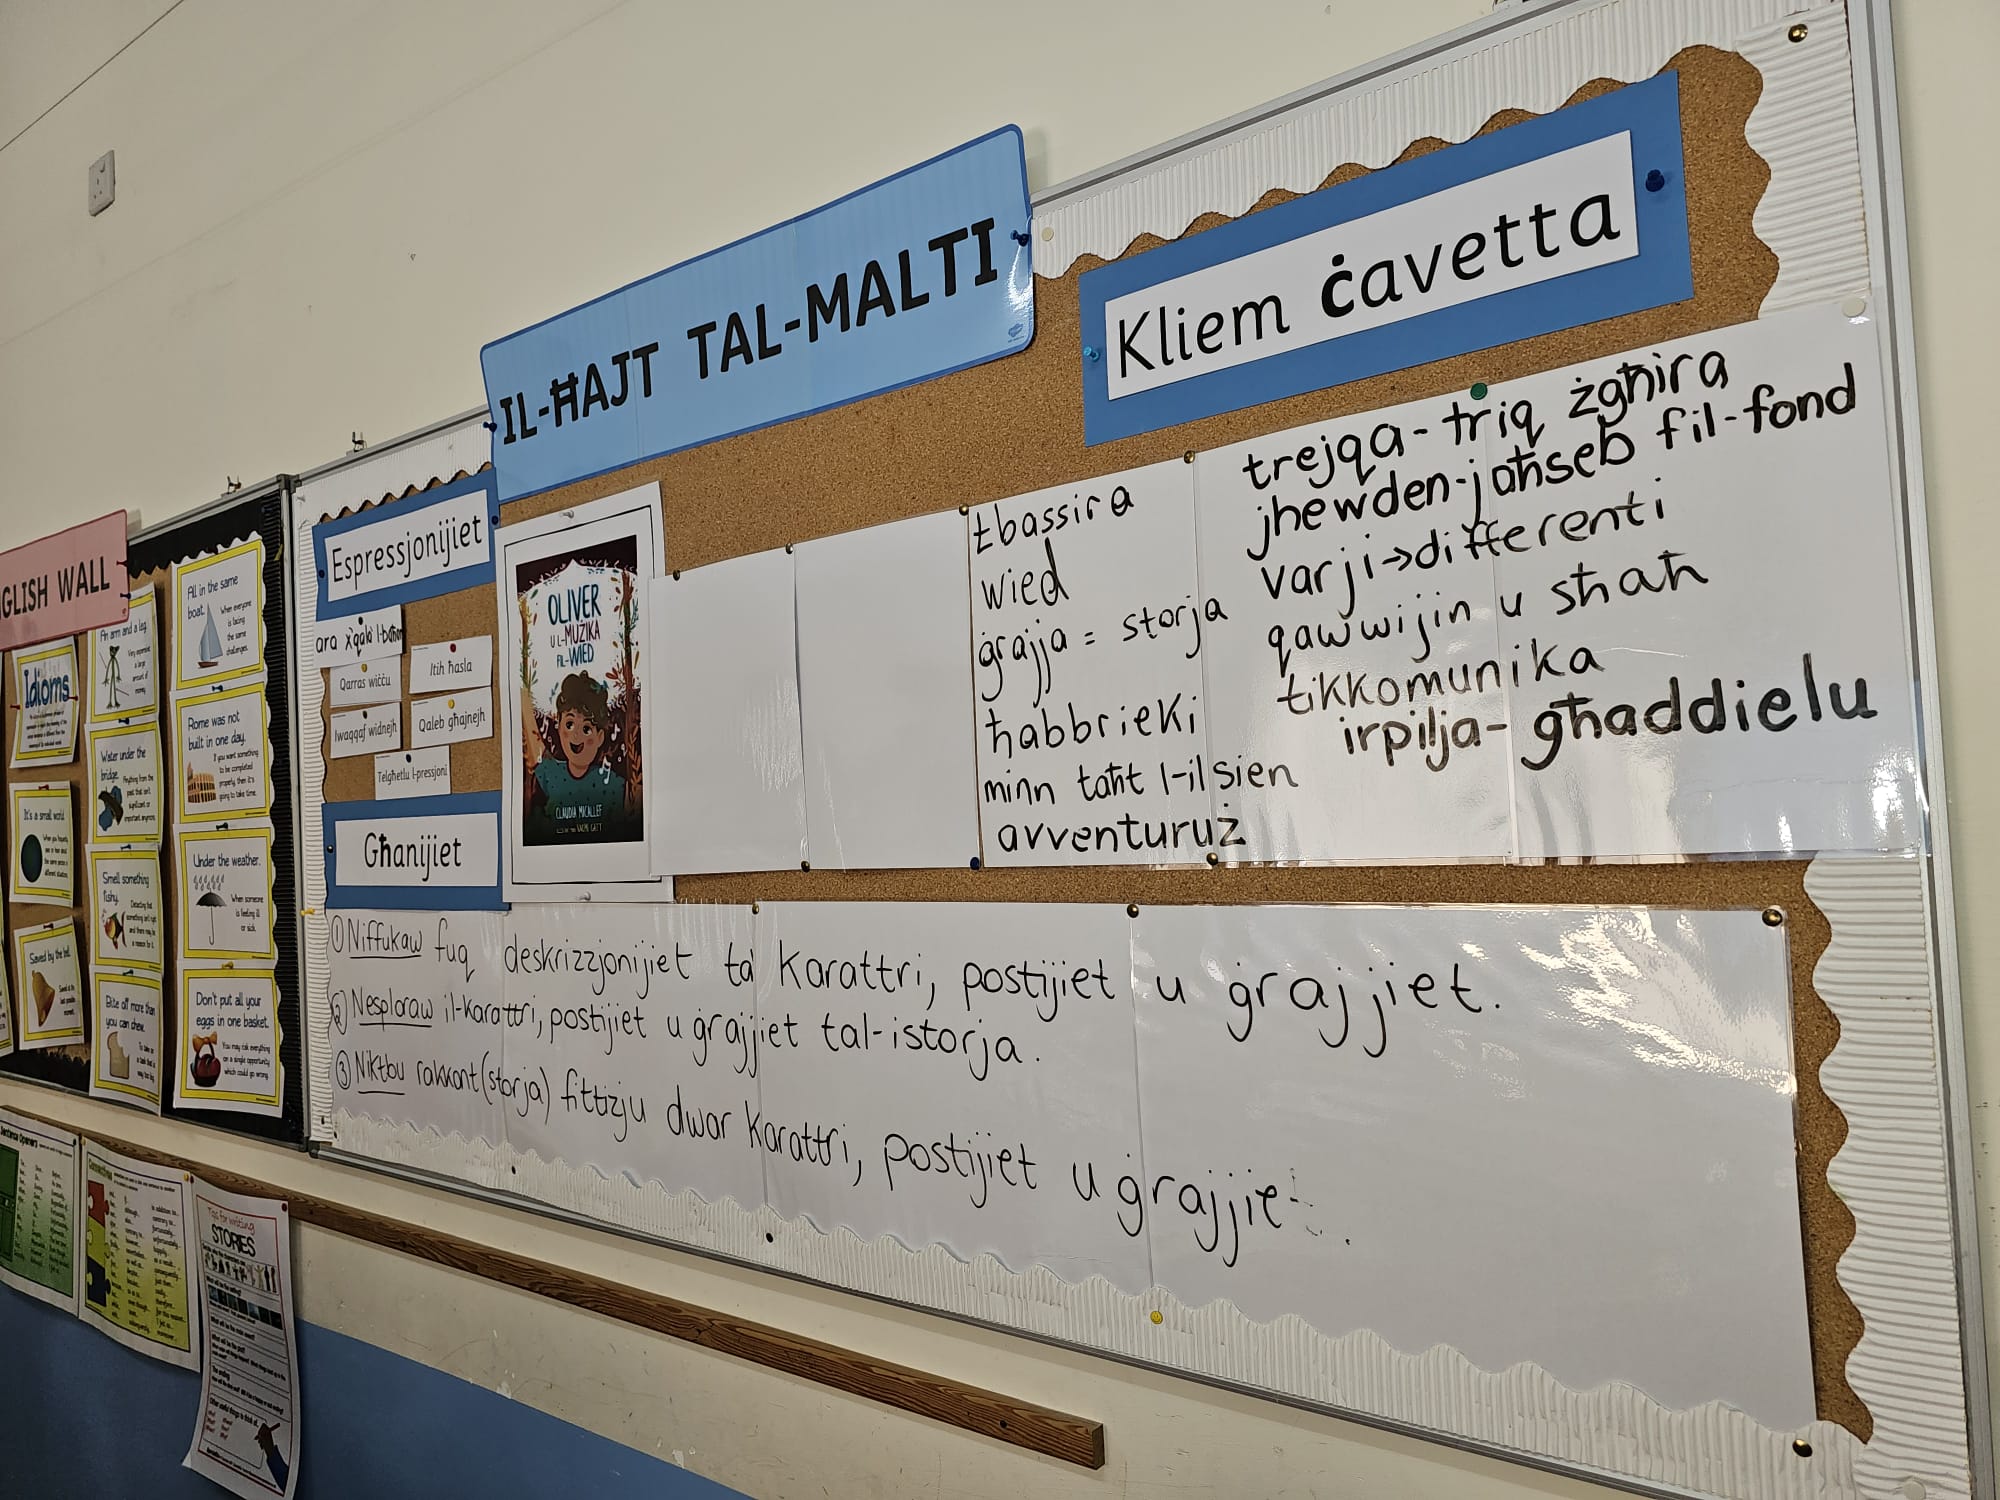 IL-ĦAJT TAL-MALTI
Kliem ċavetta
Espressjonijiet
ara x'qala' l-baħar
Qarras wiċċu
Itih ħasla
Iwaqqaf widnejh
Qaleb għajnejh
Telgħetlu l-pressjoni
OLIVER
U L-MUŻIKA
FIL-WIED
CLAUDIA MICALLEF
tbassira
wied
ġrajja = storja
ħabbrieki
minn taħt l-ilsien
avventuruż
trejqa - triq żgħira
jhewden - jaħseb fil-fond
varji → differenti
qawwijin u sħaħ
tikkomunika
irpilja - għaddielu
Għanijiet
① Niffukaw fuq deskrizzjonijiet ta' karattri, postijiet u ġrajjiet.
② Nesploraw il-karattri, postijiet u ġrajjiet tal-istorja.
③ Niktbu rakkont (storja) fittizju dwar karattri, postijiet u ġrajjiet.
GLISH WALL
Idioms
An arm and a leg.
Very expensive
a large
amount of
money.
All in the same
boat.
When everyone
is facing
the same
challenges.
Water under the
bridge.
Anything from the
past that isn't
significant or
important anymore.
Rome was not
built in one day.
If you want something
to be completed
properly, then it's
going to take time.
It's a small world
Smell something
fishy.
Detecting that
something isn't right
and there may be
a reason for it.
Under the weather.
When someone
is feeling ill
or sick.
Saved by the bell.
Bite off more than
you can chew.
To take on
a task that is
way too big.
Don't put all your
eggs in one basket.
You may risk everything
on a single opportunity
which could go wrong.
Sentence Openers
Connectives
Tips for writing
STORIES